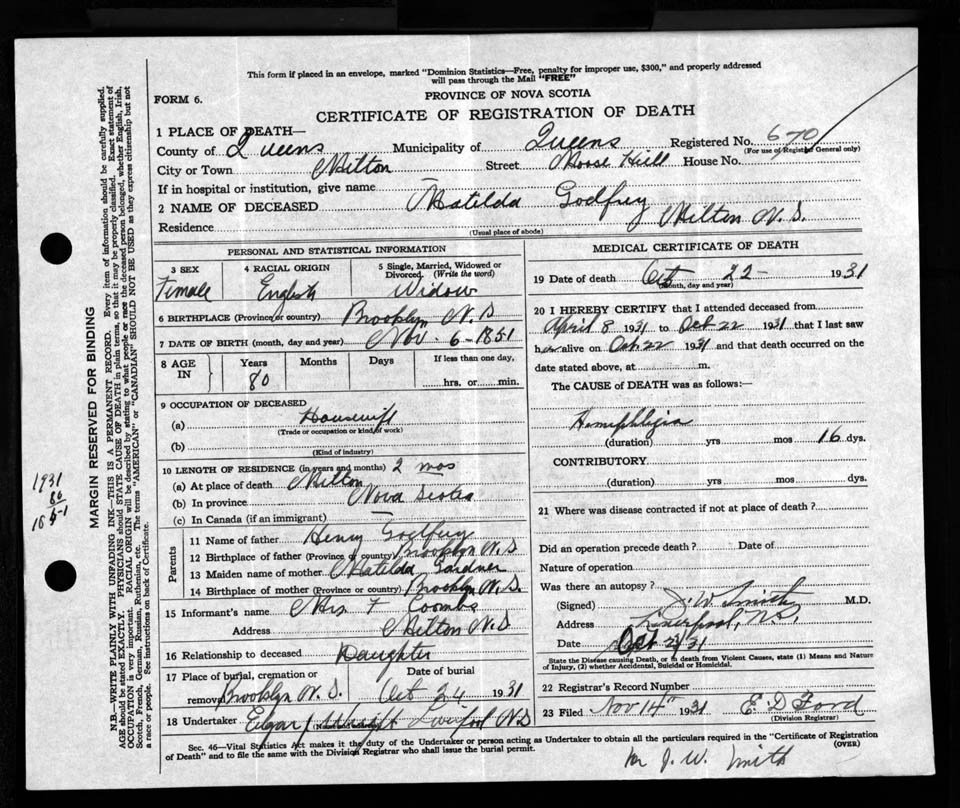 This form if placed in an envelope, marked "Dominion Statistics—Free, penalty for improper use, $300," and properly addressed
will pass through the Mail "FREE"
FORM 6.
PROVINCE OF NOVA SCOTIA
CERTIFICATE OF REGISTRATION OF DEATH
1 PLACE OF DEATH—
County of Queens Municipality of Queens Registered No. 670
(For use of Registrar General only)
City or Town Milton Street Moose Hill House No.
If in hospital or institution, give name
2 NAME OF DECEASED Matilda Godfrey
Residence Milton N.S.
(Usual place of abode)
PERSONAL AND STATISTICAL INFORMATION
3 SEX 4 RACIAL ORIGIN 5 Single, Married, Widowed or Divorced. (Write the word)
Female English Widow
6 BIRTHPLACE (Province or country) Brooklyn N.S
7 DATE OF BIRTH (month, day and year) Nov. 6-1851
8 AGE IN Years Months Days If less than one day,
80 hrs. or min.
9 OCCUPATION OF DECEASED
(a) Housewife
(Trade or occupation or kind of work)
(b)
(Kind of industry)
10 LENGTH OF RESIDENCE (in years and months) 2 mos
(a) At place of death Milton
(b) In province Nova Scotia
(c) In Canada (if an immigrant)
Parents
11 Name of father Henry Godfrey
12 Birthplace of father (Province or country) Brooklyn N.S
13 Maiden name of mother Matilda Gardner
14 Birthplace of mother (Province or country) Brooklyn N.S.
15 Informant's name Mrs F Coombs
Address Milton N.S
16 Relationship to deceased Daughter
17 Place of burial, cremation or removal Brooklyn N.S. Date of burial Oct 24 1931
18 Undertaker Edgar J Wright Liverpool NS
MEDICAL CERTIFICATE OF DEATH
19 Date of death Oct 22- 1931
(Month, day and year)
20 I HEREBY CERTIFY that I attended deceased from
April 8 1931 to Oct 22 1931 that I last saw
her alive on Oct 22 1931 and that death occurred on the
date stated above, at m.
The CAUSE of DEATH was as follows:—
Hemiphlegia
(duration) yrs mos 16 dys.
CONTRIBUTORY
(duration) yrs. mos. dys.
21 Where was disease contracted if not at place of death?
Did an operation precede death? Date of
Nature of operation
Was there an autopsy?
(Signed) J. W. Smith M.D.
Address Liverpool, N.S.
Date Oct 31
State the Disease causing Death, or in death from Violent Causes, state (1) Means and Nature
of Injury, (2) whether Accidental, Suicidal or Homicidal.
22 Registrar's Record Number
23 Filed Nov 14th 1931 E D Ford
(Division Registrar)
Sec. 46—Vital Statistics Act makes it the duty of the Undertaker or person acting as Undertaker to obtain all the particulars required in the "Certificate of Registration
of Death" and to file the same with the Division Registrar who shall issue the burial permit. (OVER)
J. W. Smith
MARGIN RESERVED FOR BINDING
N.B.—WRITE PLAINLY WITH UNFADING INK—THIS IS A PERMANENT RECORD. Every item of information should be carefully supplied.
AGE should be stated EXACTLY. PHYSICIANS should STATE CAUSE OF DEATH in plain terms, so that it may be properly classified. Exact statement of
OCCUPATION is very important. RACIAL ORIGIN will be described by stating to what people or race the deceased person belonged, whether English, Irish,
Scotch, French, German, Russian, Ruthenian, etc. The terms "AMERICAN" or "CANADIAN" SHOULD NOT BE USED as they express citizenship but not
a race or people. See instructions on back of Certificate.
1931
80